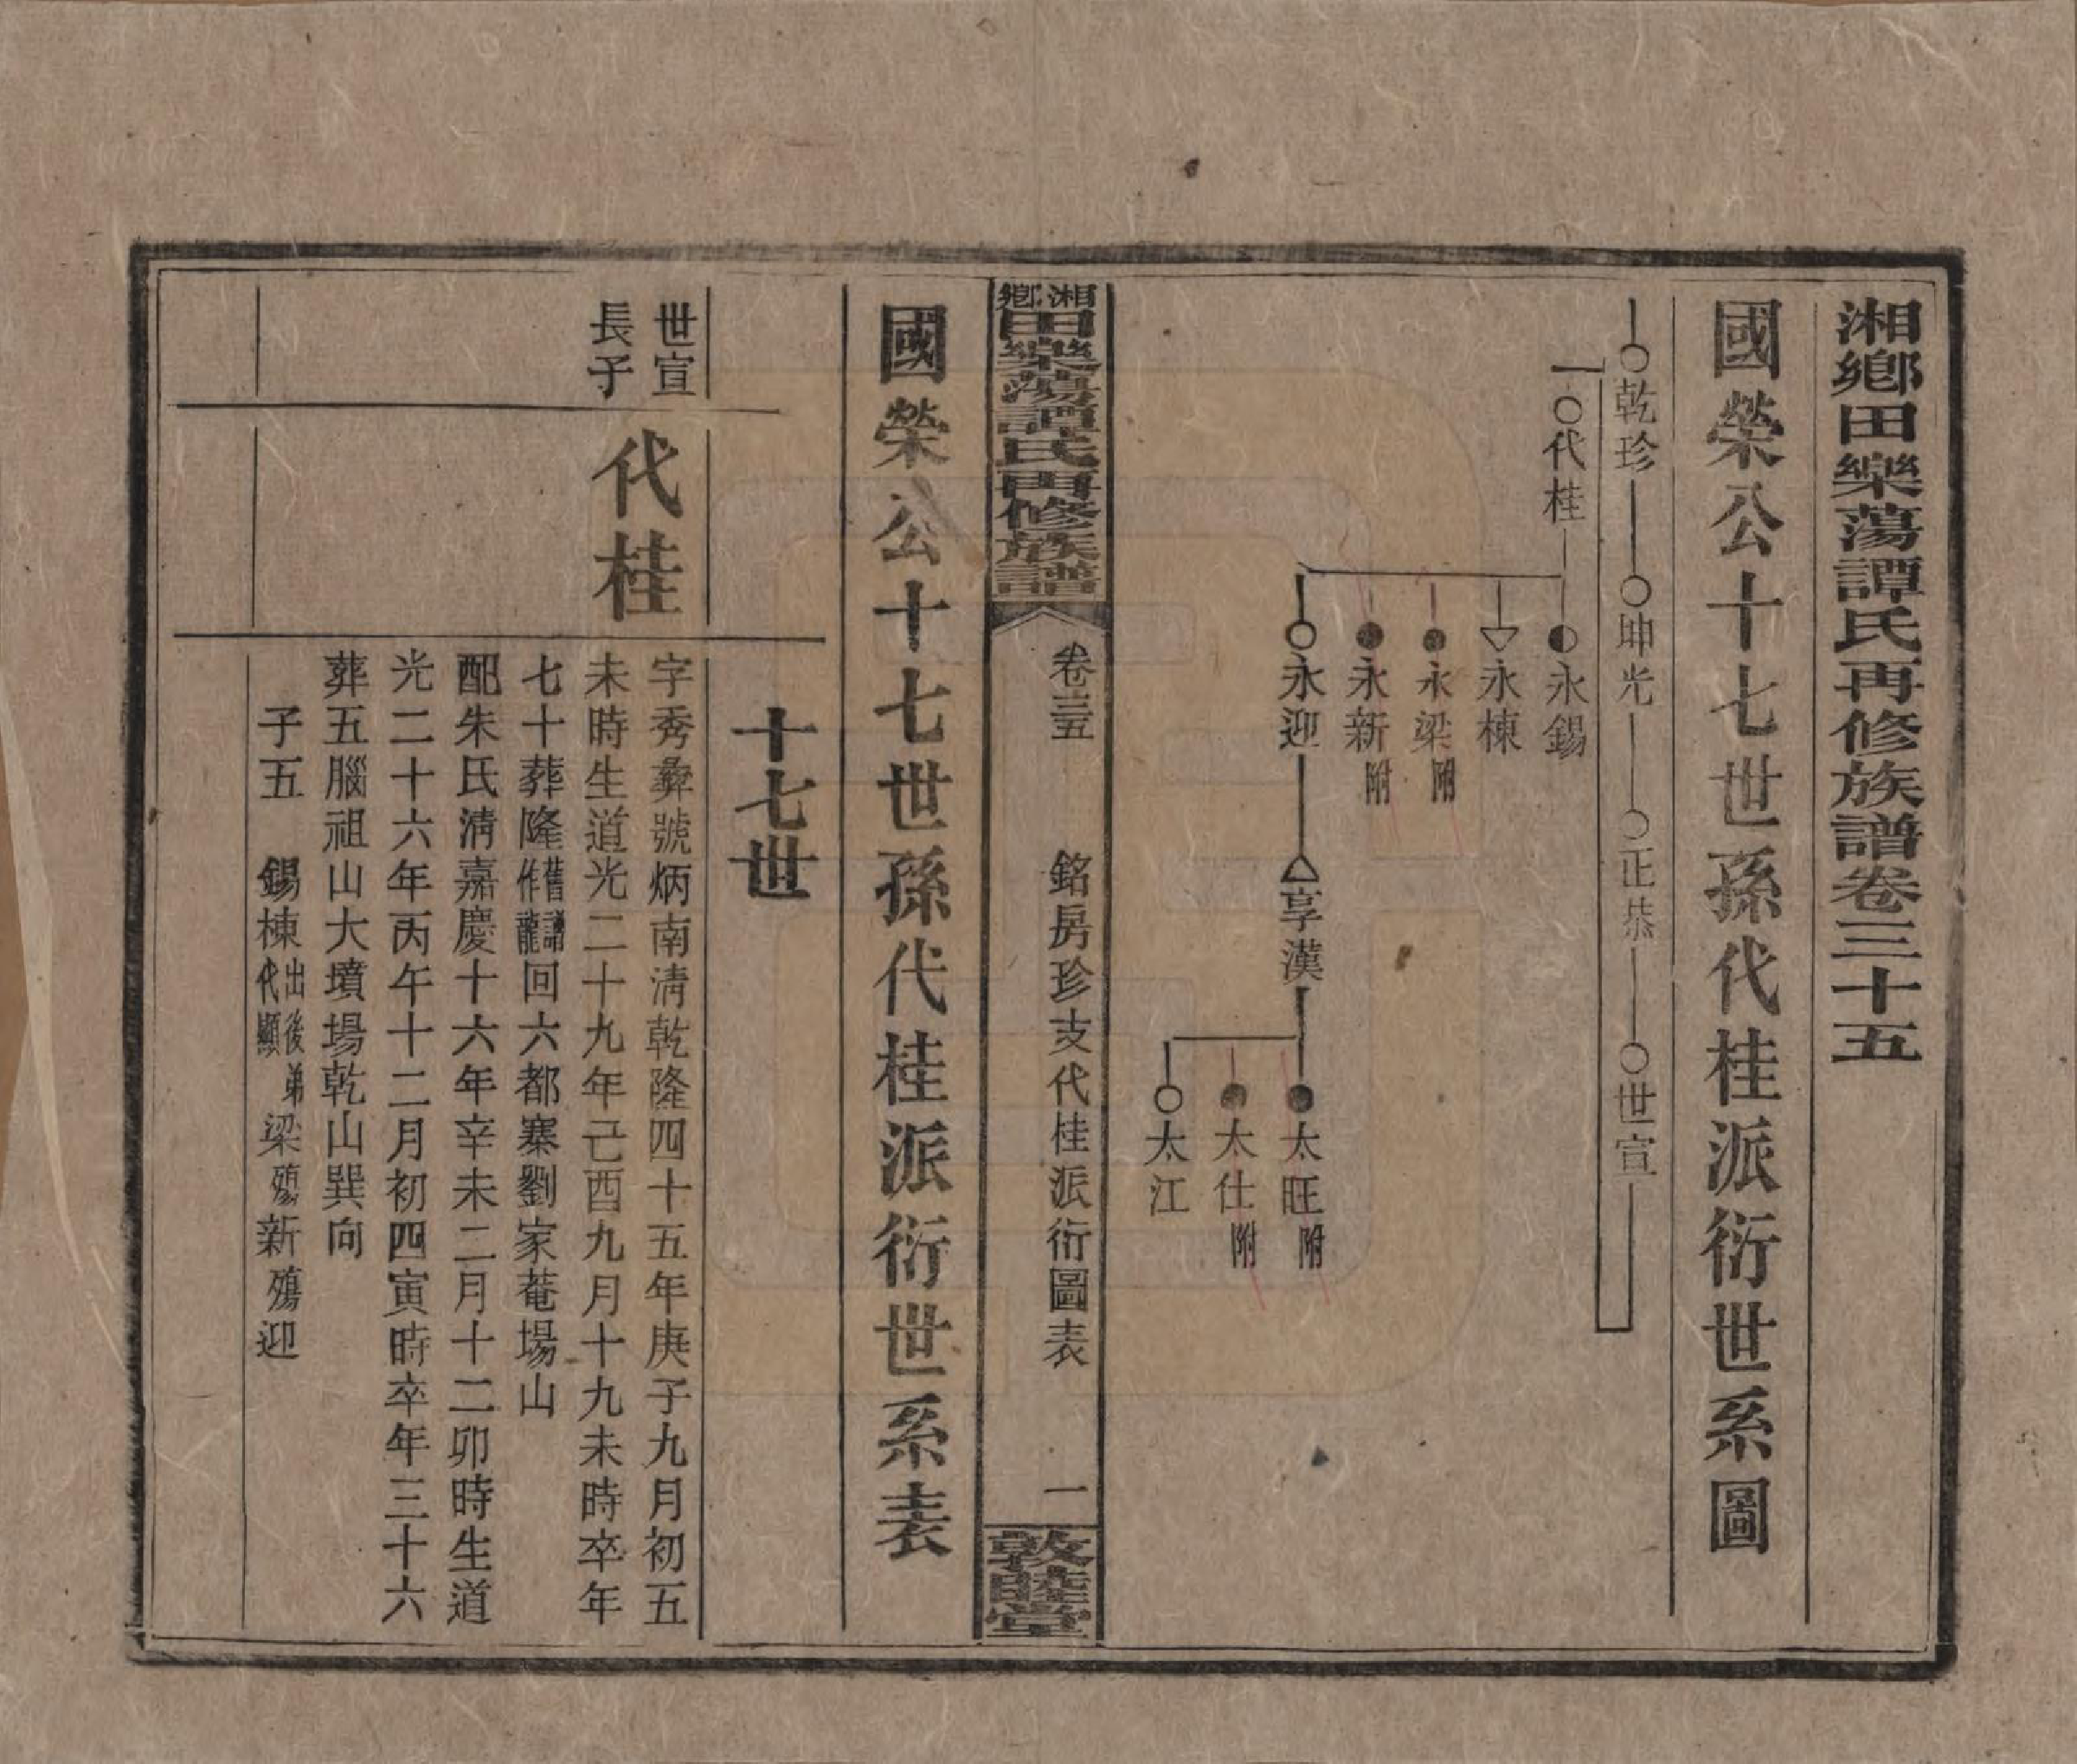 湘鄉田樂蕩譚氏再修族譜卷三十五
國榮公十七世孫代桂派衍世系圖
乾珍 坤光 正恭 世宣
代桂
永錫
永棟
永梁附
永新附
永迎 享漢
太旺附
太仕附
太江
湘鄉田樂蕩譚氏再修族譜 卷三五 銘房珍支代桂派衍圖表 一 敦睦堂
國榮公十七世孫代桂派衍世系表
十七世
世宣
長子
代桂
字秀彝號炳南清乾隆四十五年庚子九月初五
未時生道光二十九年己酉九月十九未時卒年
七十葬隆舊譜作龍回六都寨劉家菴場山
配朱氏清嘉慶十六年辛未二月十二卯時生道
光二十六年丙午十二月初四寅時卒年三十六
葬五腦祖山大墳場乾山巽向
子五 錫棟出後弟代顯梁殤新殤迎